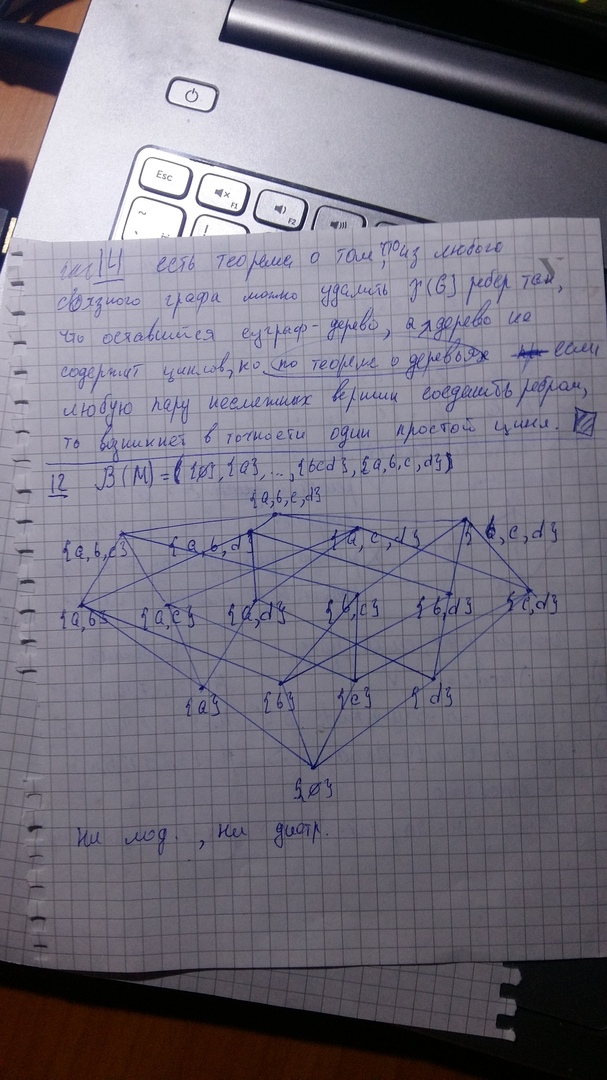 Esc
F1
F2
~
!
14 есть теорема о том, что из любого
связного графа можно удалить γ(G) ребер так,
что оставшийся суграф - дерево, а дерево не
содержит циклов, но по теореме о деревьях если
любую пару несмежных вершин соединить ребром,
то возникнет в точности один простой цикл.
12 B(M) = ( {∅}, {a}, ..., {bcd}, {a,b,c,d})
{a,b,c,d}
{a,b,c} {a,b,d} {a,c,d} {b,c,d}
{a,b} {a,c} {a,d} {b,c} {b,d} {c,d}
{a} {b} {c} {d}
{∅}
Ни мод., ни дистр.